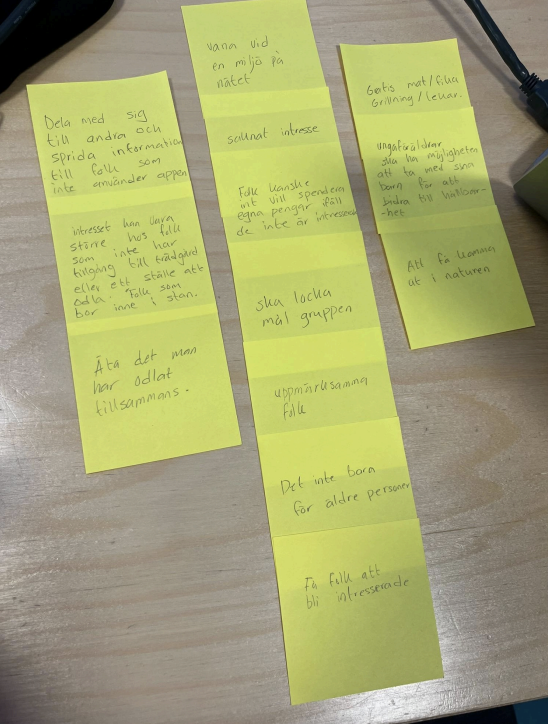 Dela med sig
till andra och
sprida information
till folk som
inte använder appen
intresset kan vara
större hos folk
som inte har
tillgång till trädgård
eller ett ställe att
odla. Folk som
bor inne i stan.
Äta det man
har odlat
tillsammans.
vana vid
en miljö på
nätet
saknat intresse
Folk kanske
int vill spendera
egna pengar ifall
de inte är intresserad
ska locka
mål gruppen
uppmärksamma
folk
Det inte bara
för äldre personer
Få folk att
bli intresserade
Gratis mat/fika
Grillning/lekar.
ungaföräldrar
ska ha möjligheten
att ta med sina
barn för att
bidra till hållbar-
-het
Att få komma
ut i naturen